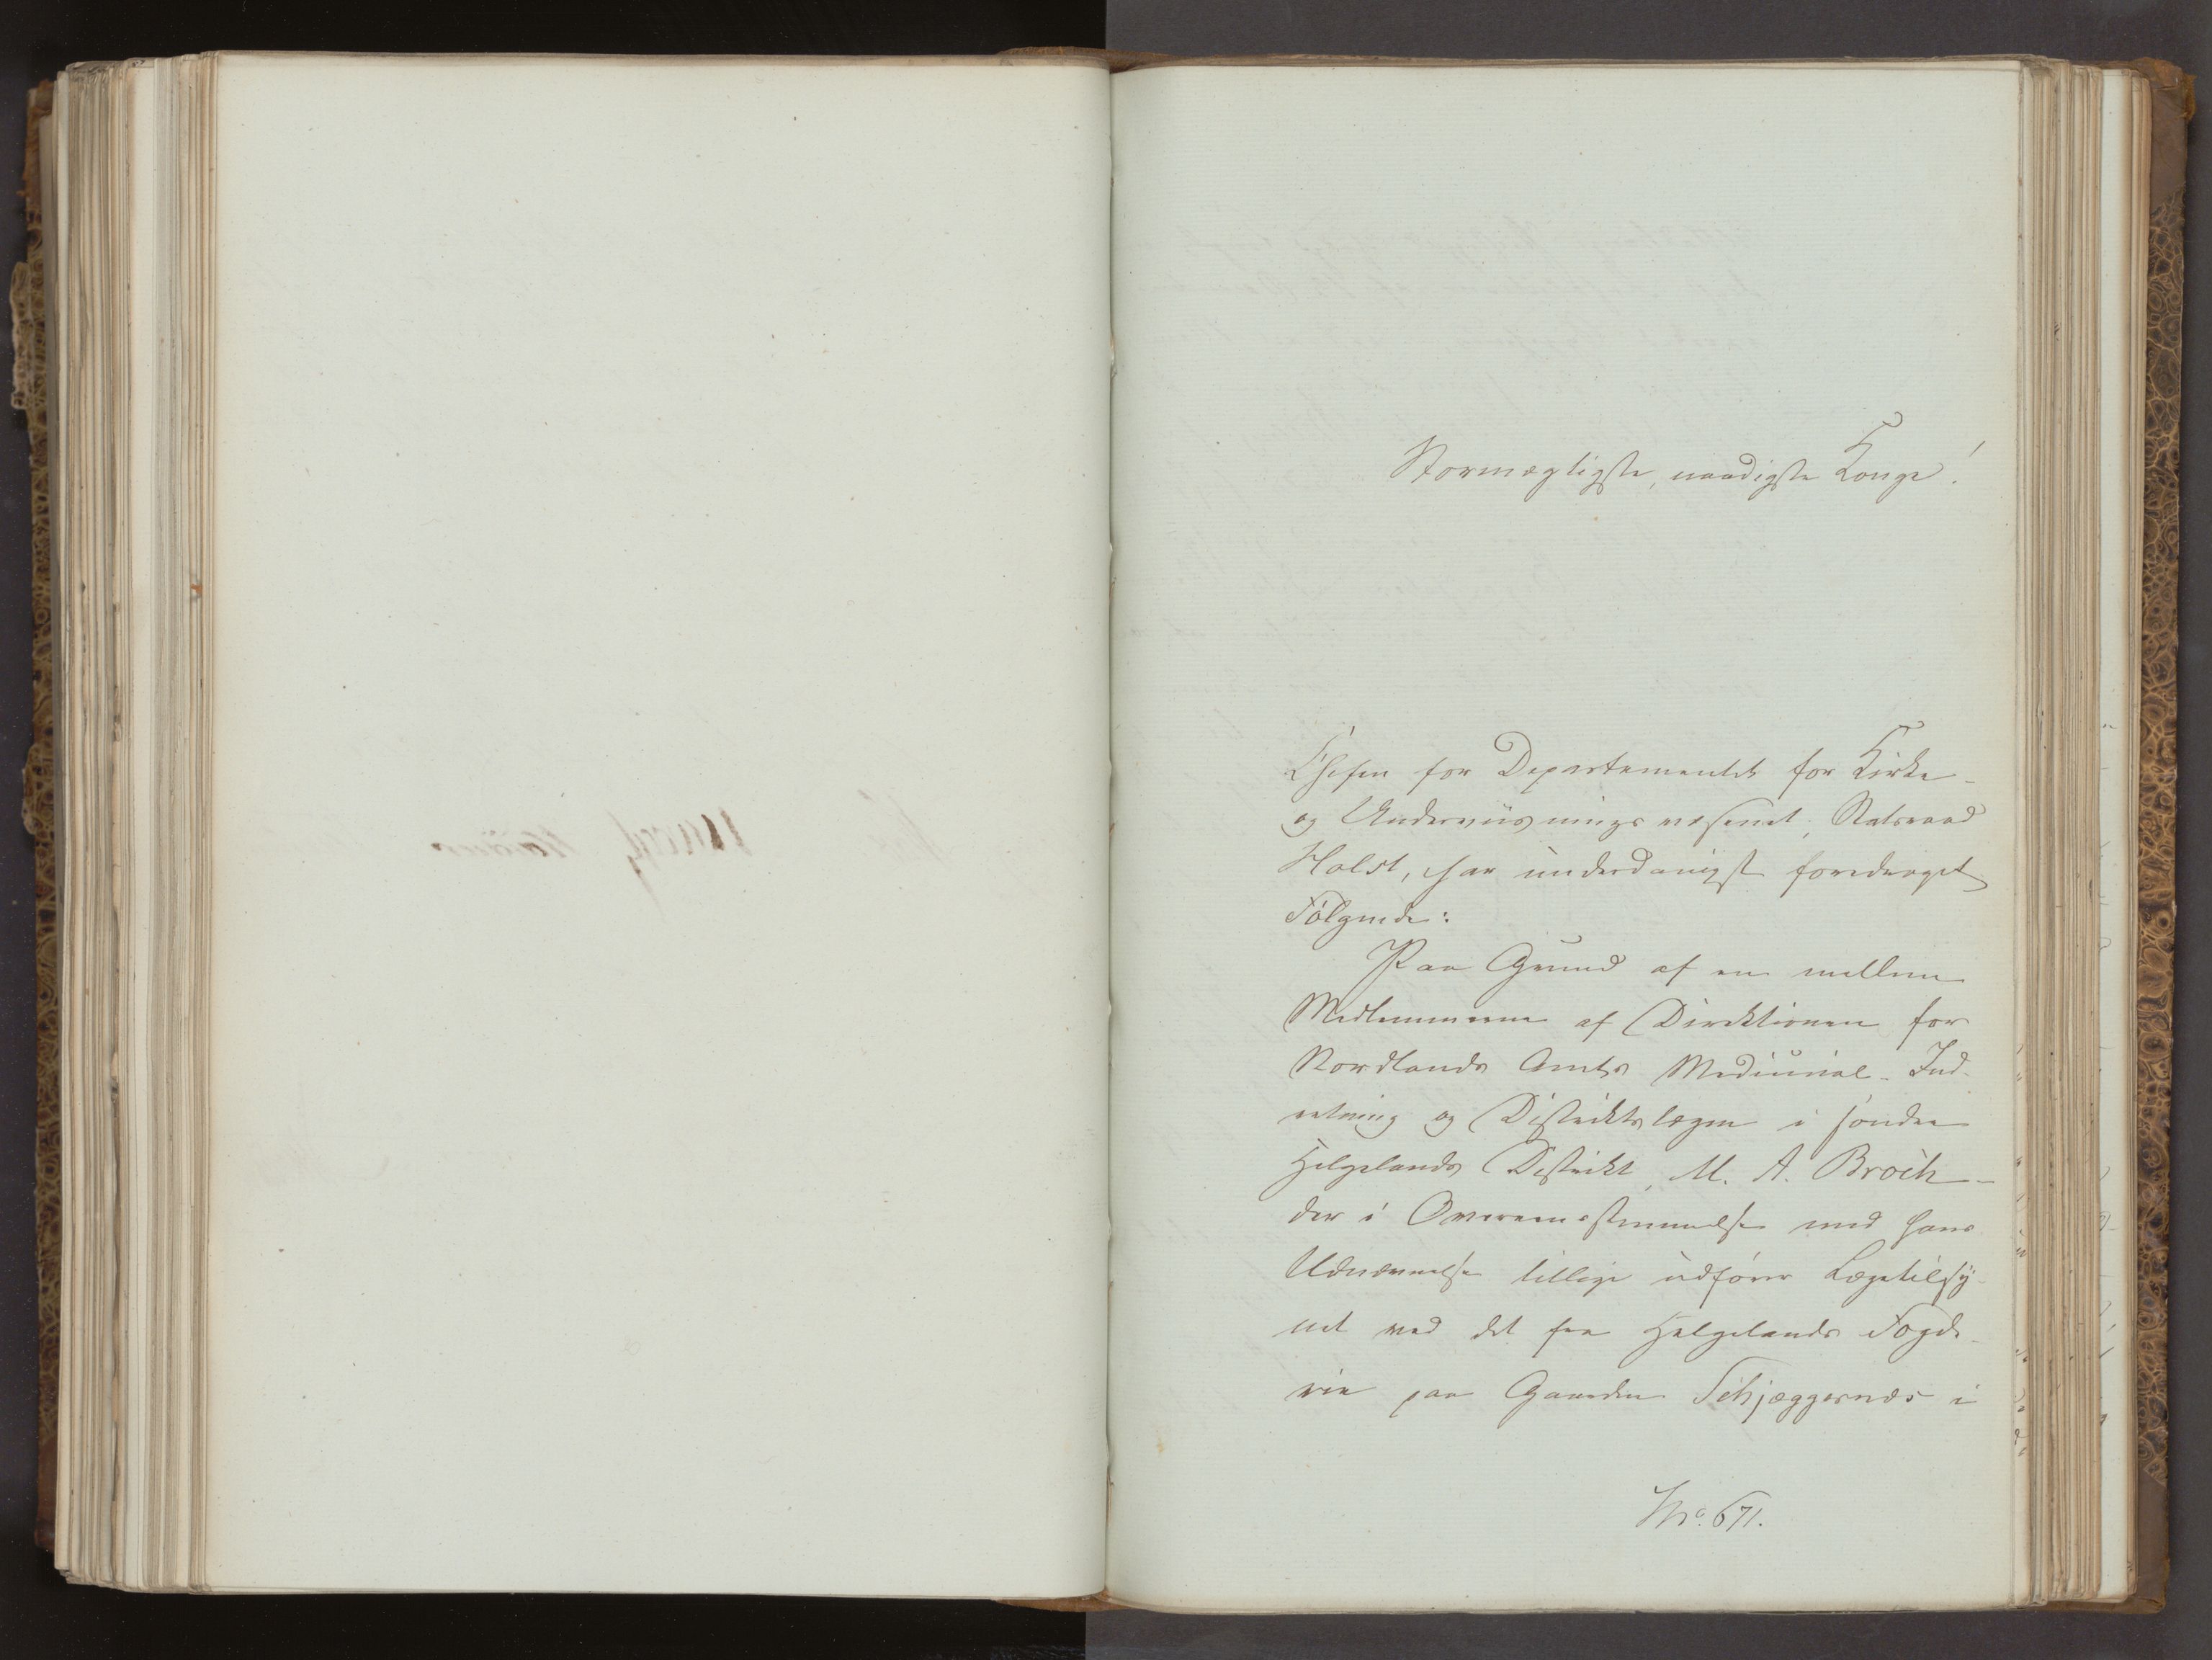 Stormægtigste, naadigste Konge!
Chefen for Departementet for Kirke-
og Underviisningsvæsenet, Statsraad
Holst, har underdanigst foredraget
Følgende:
Paa Grund af en mellem
Medlemmerne af Direktionen for
Nordlands Amts Medicinal-Ind-
retning og Distriktslægen i søndre
Helgelands Distrikt, M. A. Broch -
der i Overeensstemmelse med hans
Udnævnelse tillige udfører Lægetilsy-
net ved det for Helgelands Fogde-
rie paa Gaarden Schjæggesnæs i
No. 671.